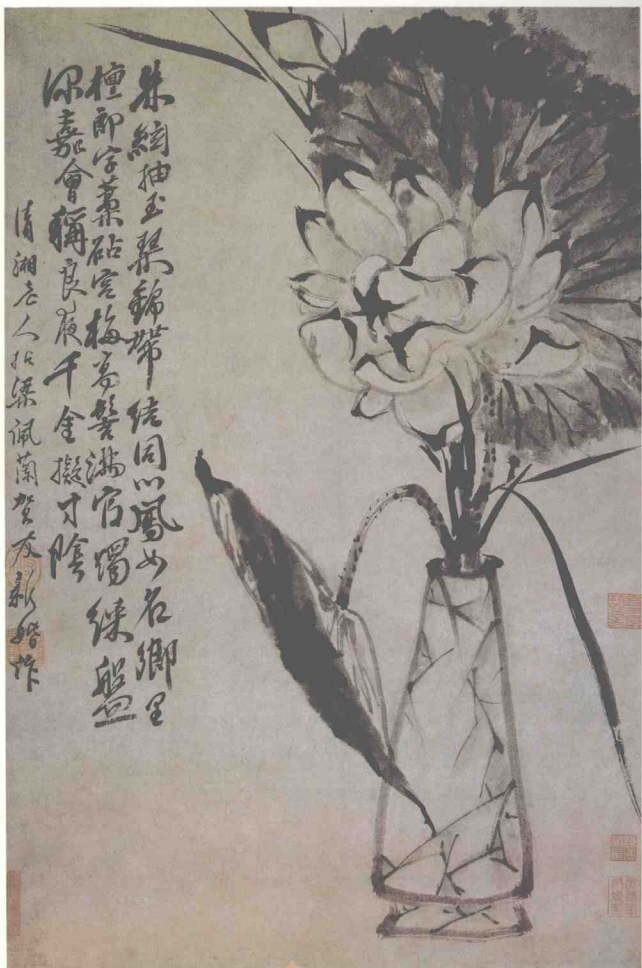 朱絃抽玉琴錦帶結同心鳳女名鄉里
檀郎字藁砧宮梅高髻滿官燭盤
深嘉會稱良夜千金擬寸陰
清湘老人拈梁佩蘭賀友新婚作